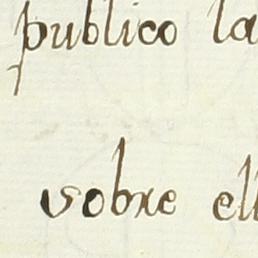 publico la
sobre ell